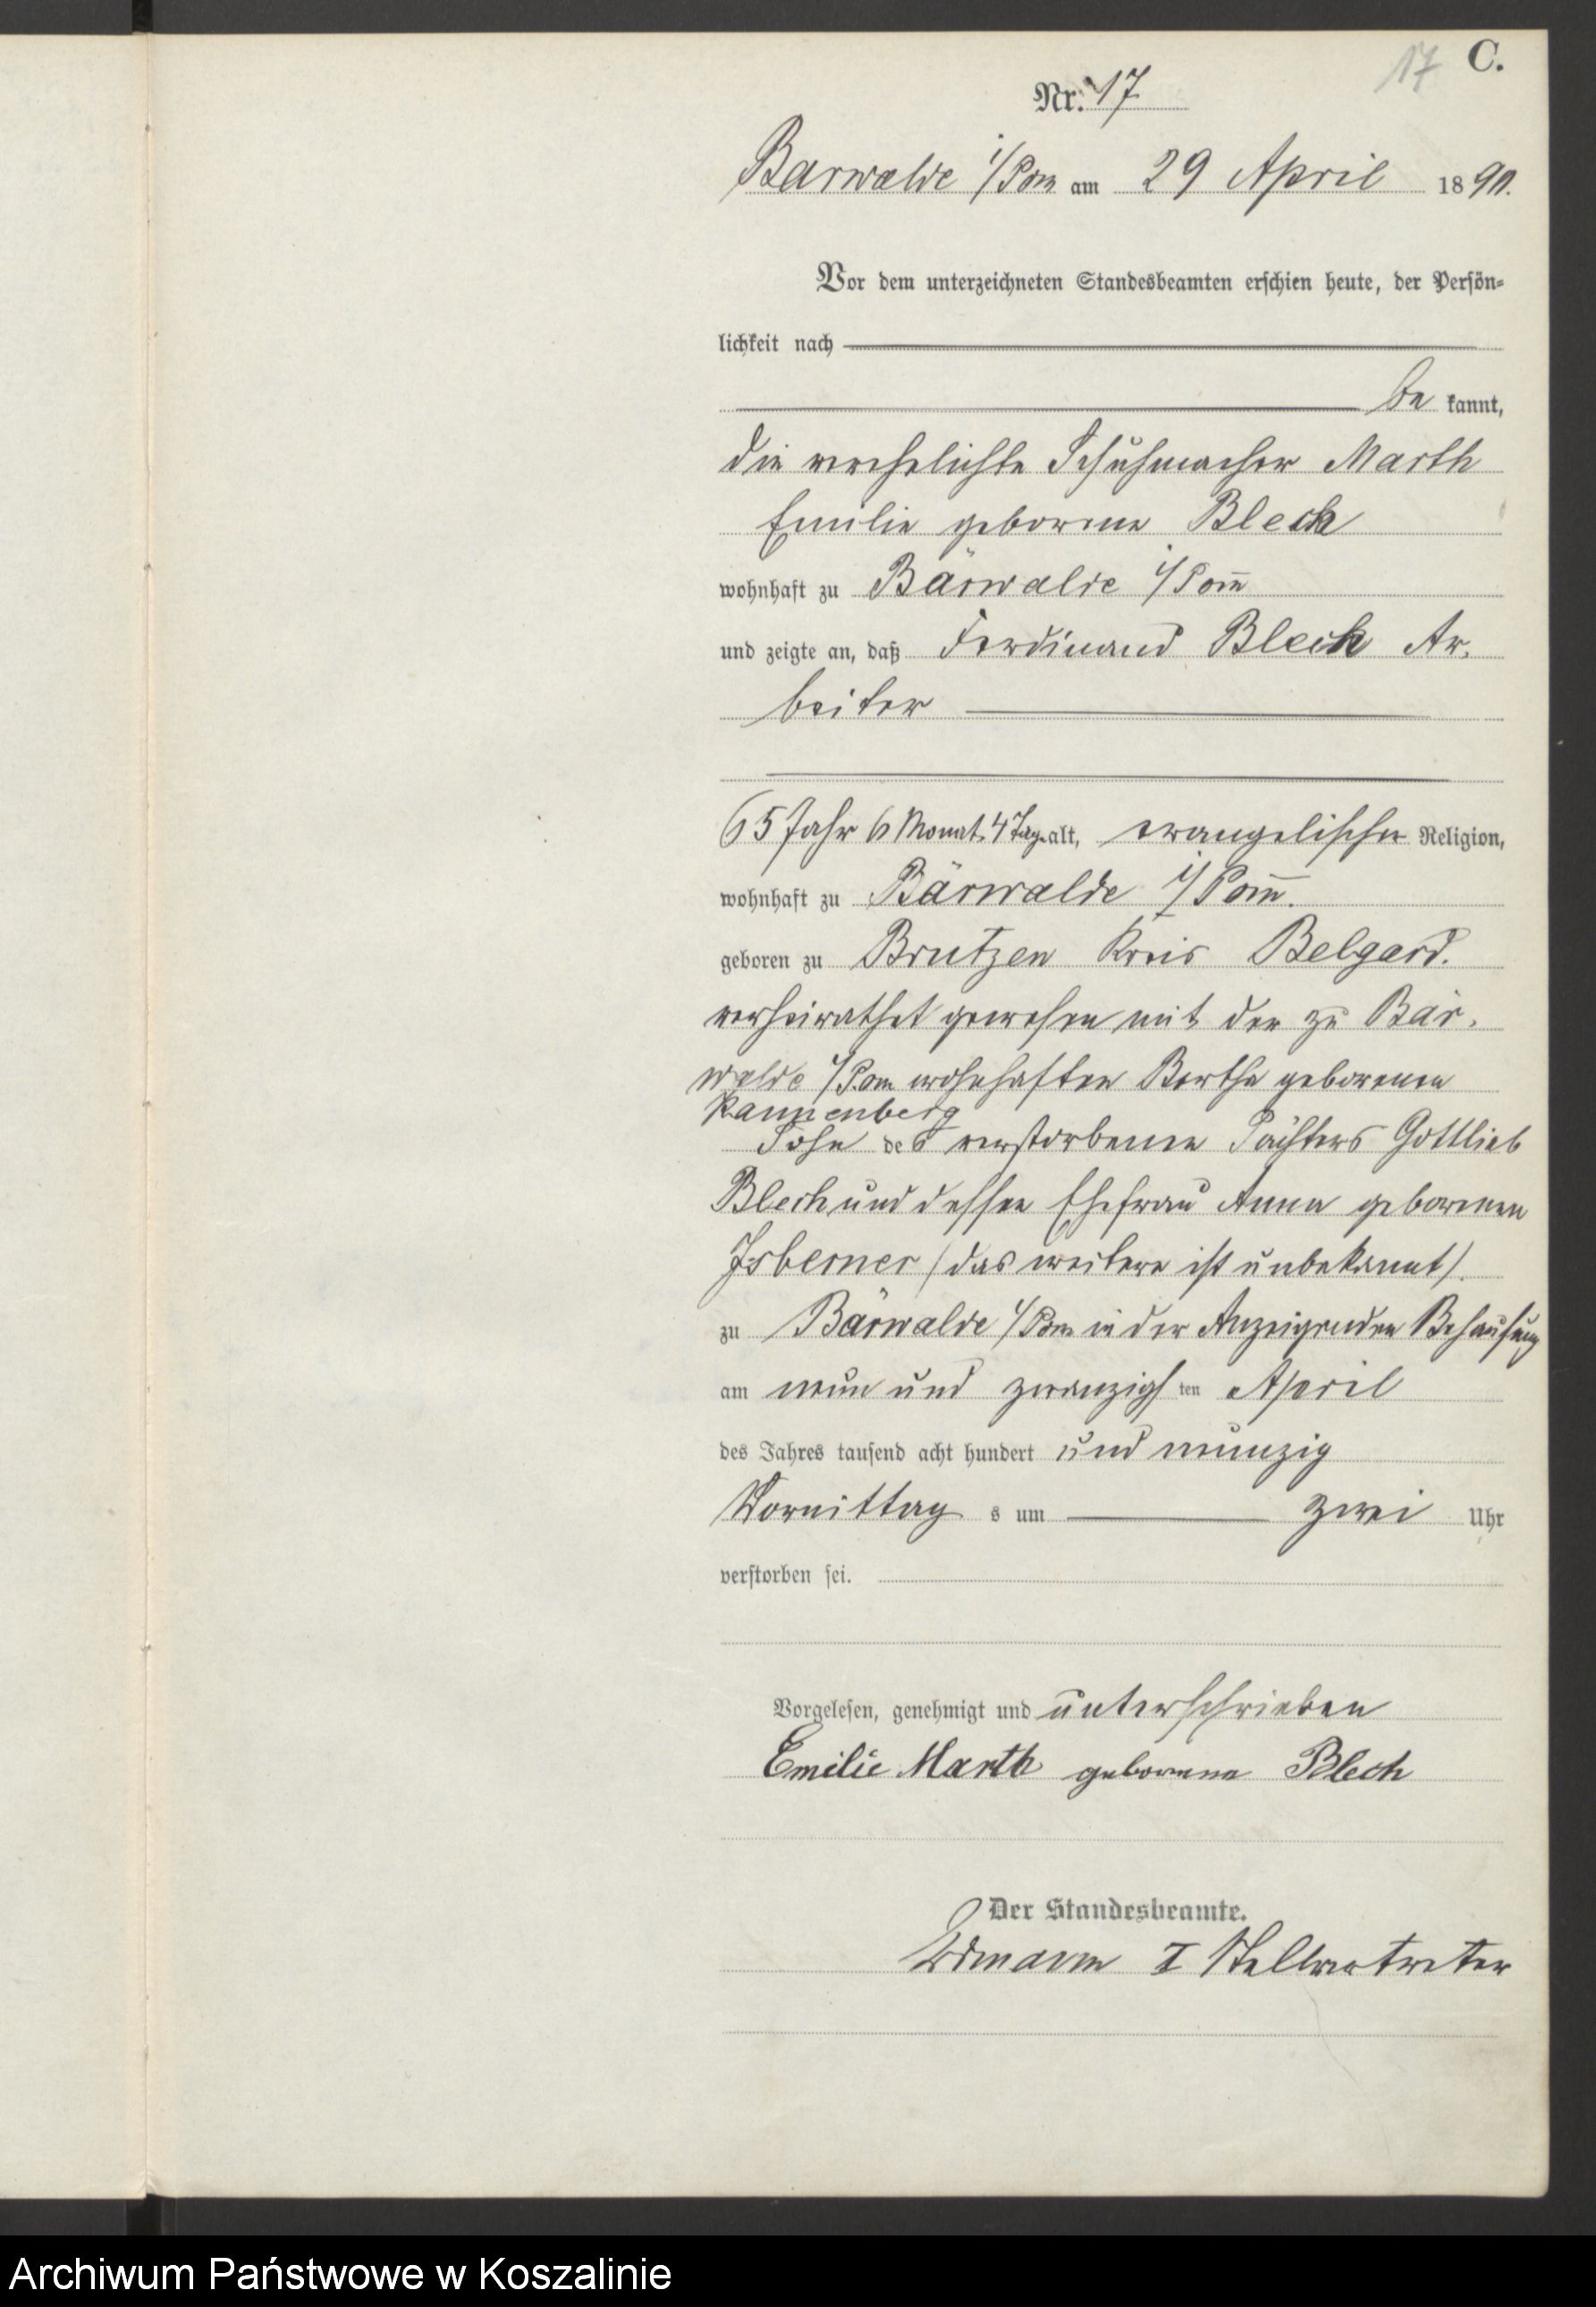 17 C.
Nr. 17
Bärwalde i/Pom am 29 April 1890.
Vor dem unterzeichneten Standesbeamten erschien heute, der Persön-
lichkeit nach
be kannt,
die verehelichte Schuhmacher Marth
Emilie geborene Blech
wohnhaft zu Bärwalde i/Pom̅
und zeigte an, daß Ferdinand Blech Ar-
beiter
65 Jahr 6 Monat 4 Tage alt, evangelischer Religion,
wohnhaft zu Bärwalde i/Pom̅.
geboren zu Brutzen Kreis Belgard.
verheirathet gewesen mit der zu Bär-
walde i/Pom wohnhaften Bertha geborenen
Rannenberg
Sohn des verstorbenen Pächters Gottlieb
Blech und dessen Ehefrau Anna geborenen
Isberner (das weitere ist unbekannt).
zu Bärwalde i/Pom in der Anzeigenden Behausung
am neun und zwanzigsten April
des Jahres tausend acht hundert und neunzig
Vormittags um zwei Uhr
verstorben sei.
Vorgelesen, genehmigt und unterschrieben
Emilie Marth geborene Blech
Der Standesbeamte.
Erdmann I Stellvertreter
Archiwum Państwowe w Koszalinie